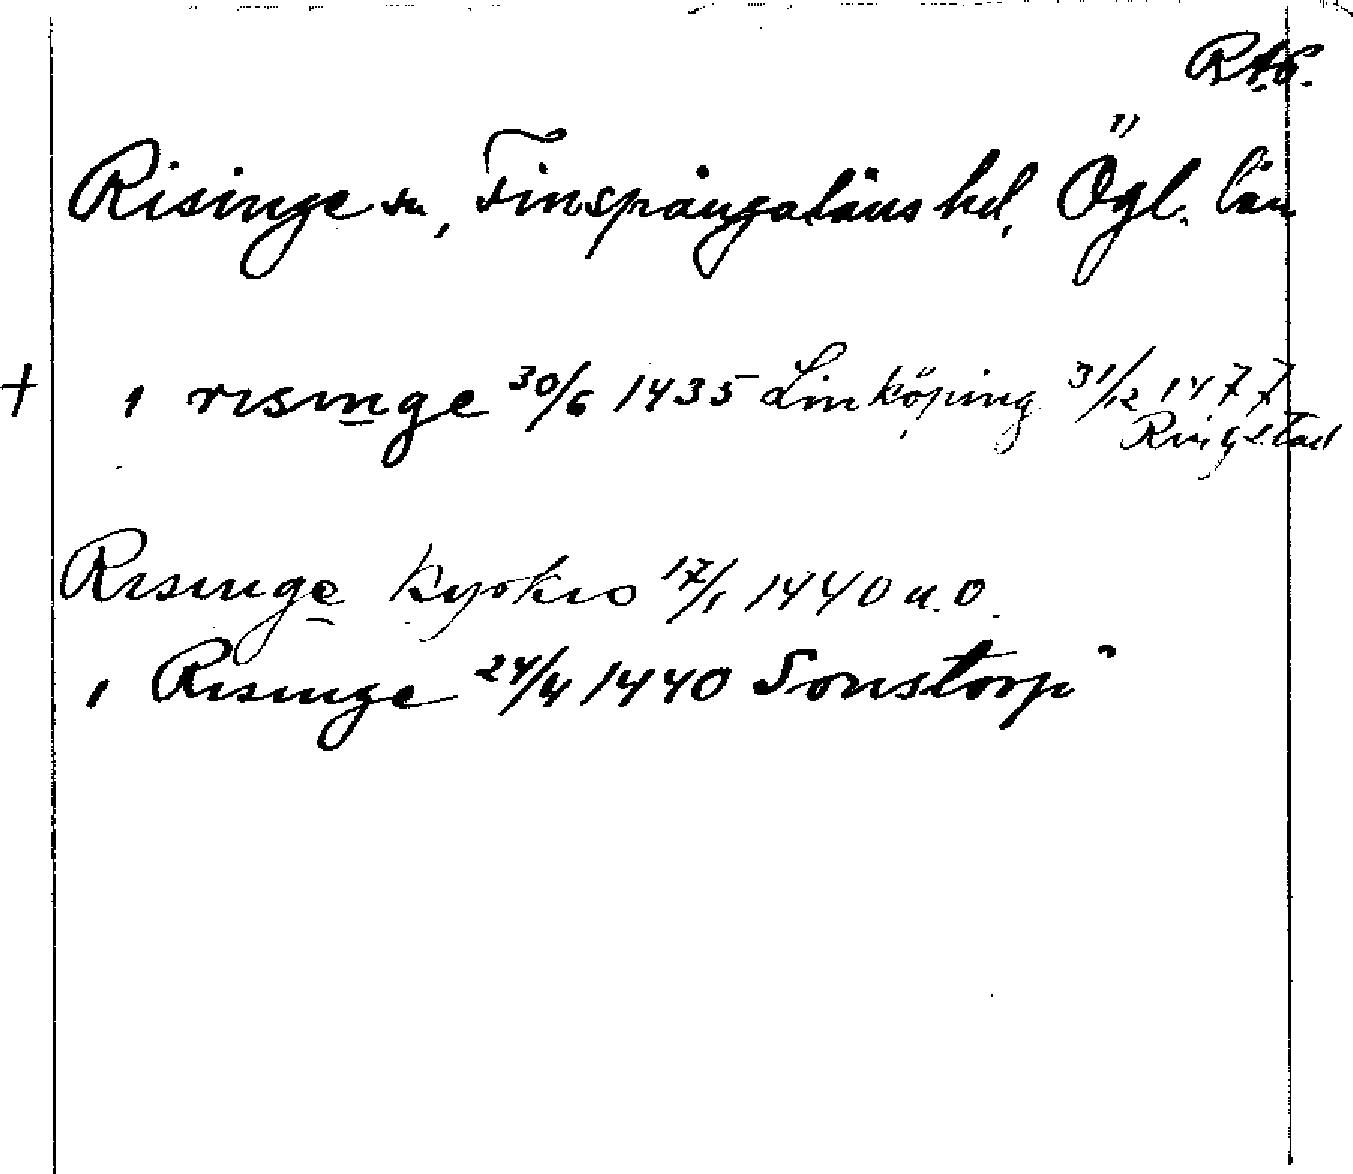 RAP.
Risinge sn, Finspångaläns hd, Ögl. län
+ ı rısınge 30/6 1435 Linköping 31/12 1477
Ringstad
Rısınge kyrkıo 17/1 1440 u.o.
ı Rısınge 24/4 1440 Sonstorp